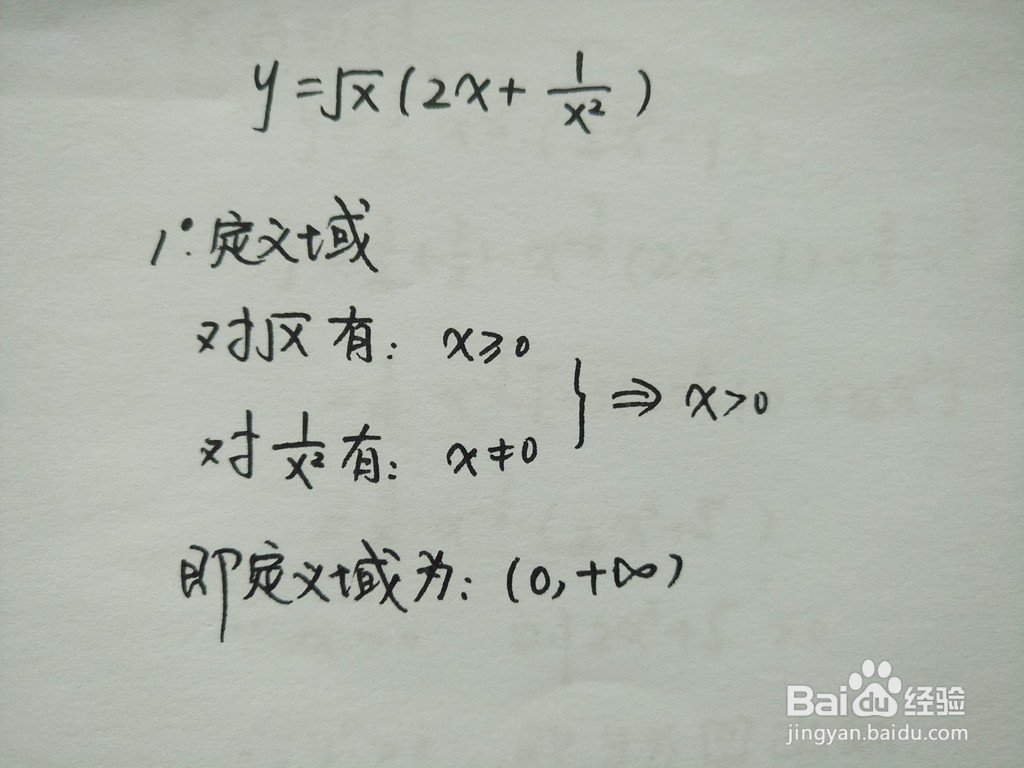 y=√x(2x+1/x²)
1°.定义域
对√x有: x≥0
⇒ x>0
对1/x²有: x≠0
即定义域为: (0,+∞)
Baidu经验
jingyan.baidu.com